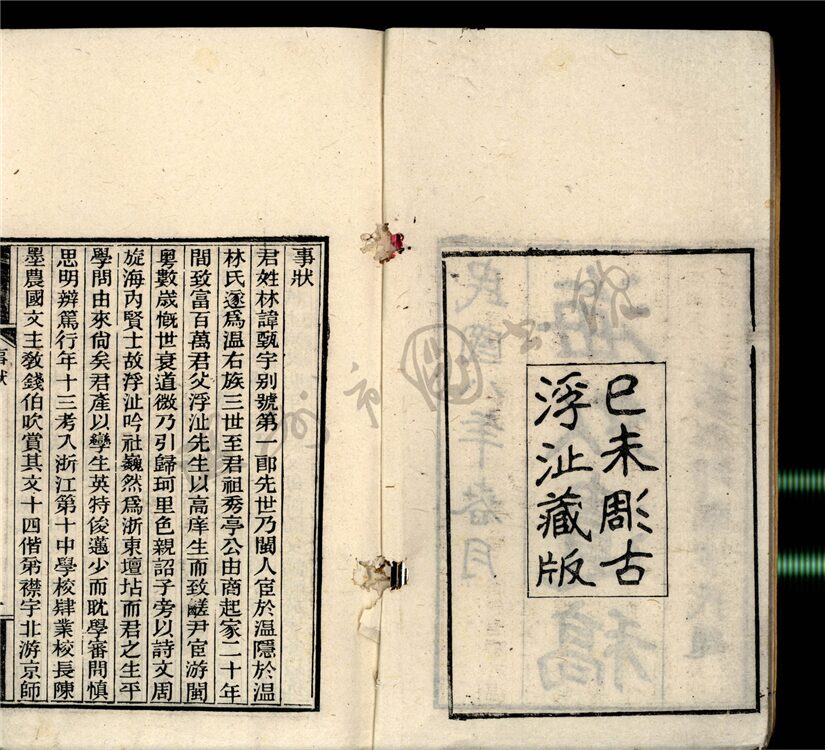 己未彫古
浮沚藏版
事狀
君姓林諱甄宇别號第一郎先世乃閩人宦於温隱於温
林氏遂爲温右族三世至君祖秀亭公由商起家二十年
間致富百萬君父浮沚先生以高庠生而致鹺尹宦游閩
粵數歲慨世衰道微乃引歸珂里色親詔子旁以詩文周
旋海内賢士故浮沚吟社巍然爲浙東壇坫而君之生平
學問由來尙矣君產以孿生英特俊邁少而耽學審問慎
思明辯篤行年十三考入浙江第十中學校肄業校長陳
墨農國文主敎錢伯吹賞其文十四偕第襟宇北游京師